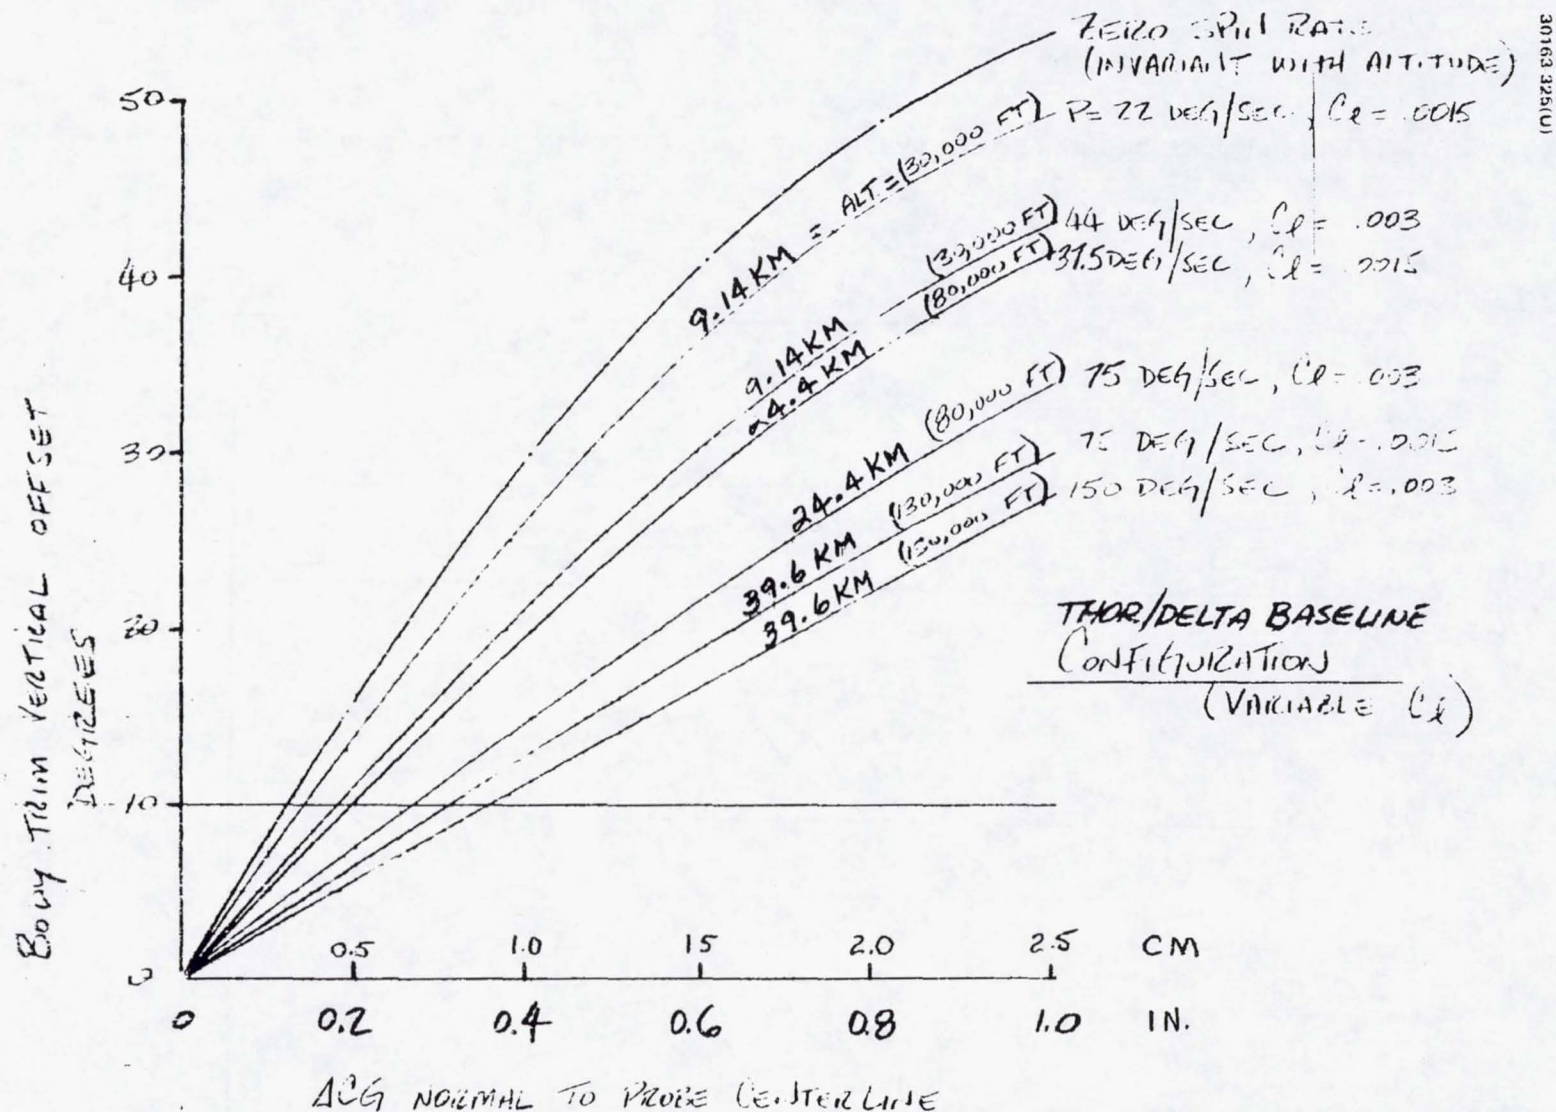 30163 325(U)
ZERO SPIN RATE
(INVARIANT WITH ALTITUDE)
P= 22 DEG/SEC, Cl = .0015
9.14 KM = ALT = (30,000 FT)
44 DEG/SEC, Cl = .003
9.14 KM (30,000 FT)
37.5 DEG/SEC, Cl = .0015
24.4 KM (80,000 FT)
75 DEG/SEC, Cl = .003
24.4 KM (80,000 FT)
75 DEG/SEC, Cl = .0015
39.6 KM (130,000 FT)
150 DEG/SEC, Cl = .003
39.6 KM (130,000 FT)
THOR/DELTA BASELINE
CONFIGURATION
(VARIABLE Cl)
BODY TRIM VERTICAL OFFSET
DEGREES
50
40
30
20
10
0
0.5 1.0 1.5 2.0 2.5 CM
0 0.2 0.4 0.6 0.8 1.0 IN.
ΔCG NORMAL TO PROBE CENTERLINE